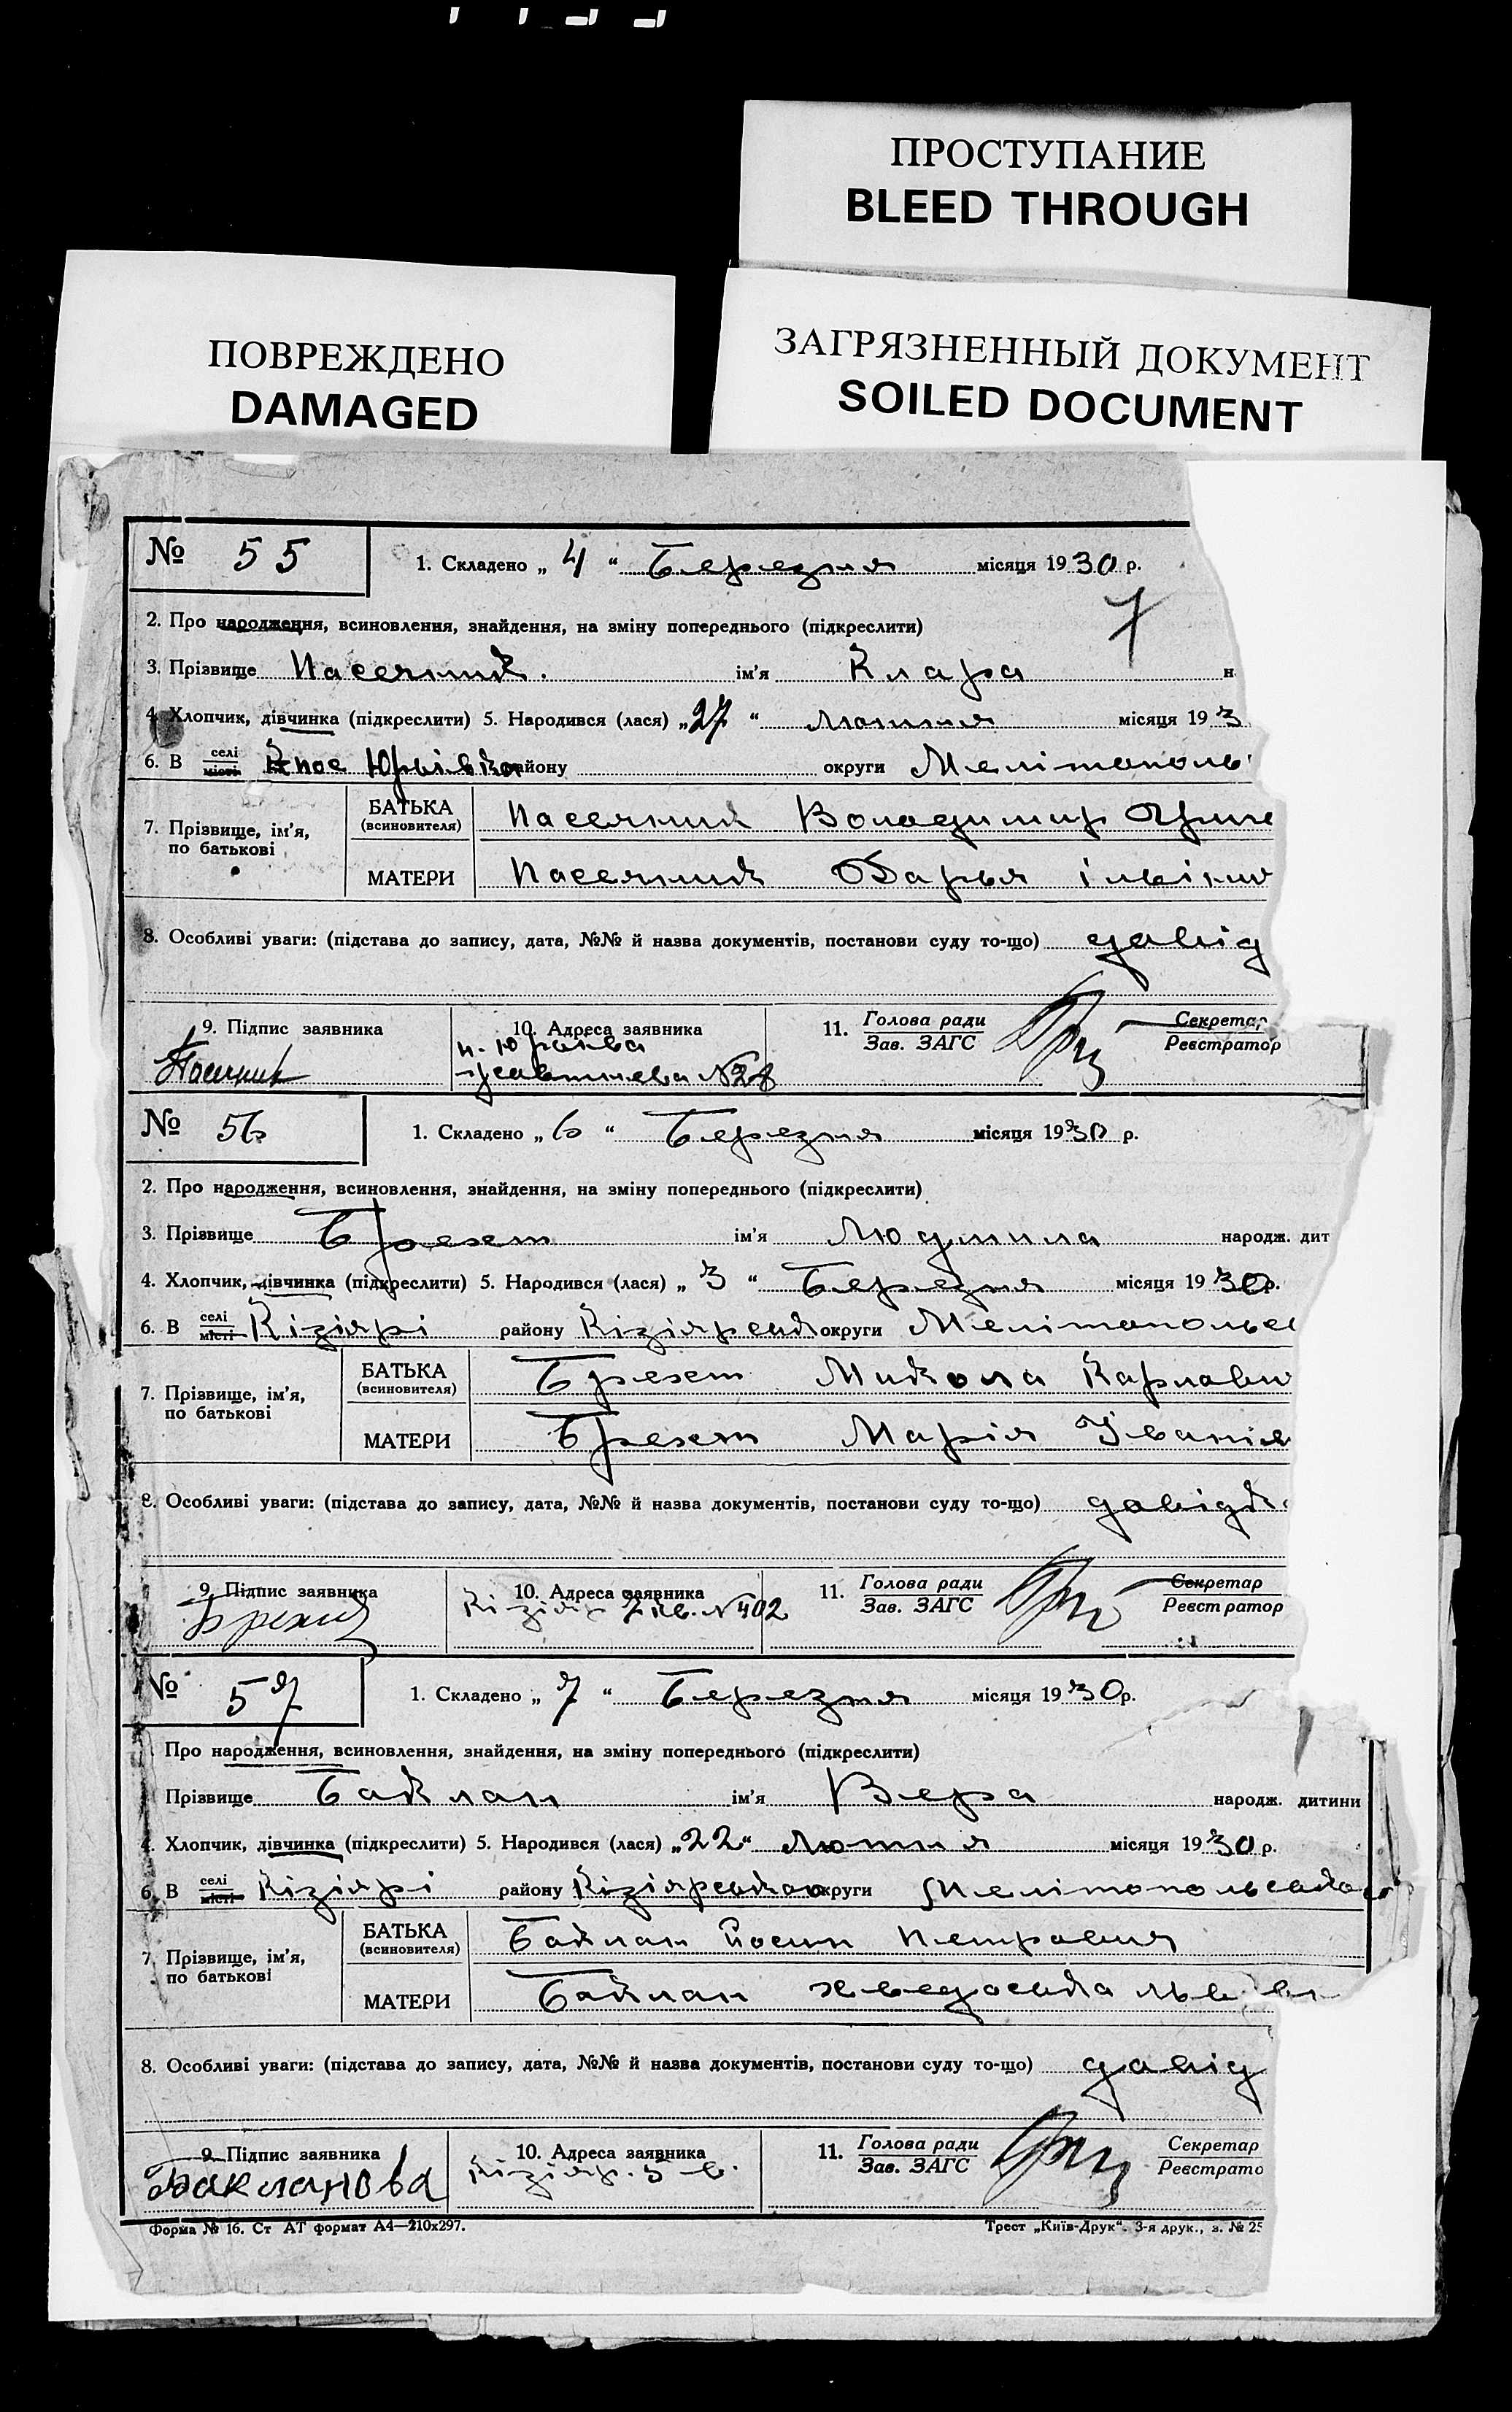 ПРОСТУПАНИЕ
BLEED THROUGH
ПОВРЕЖДЕНО
DAMAGED
ЗАГРЯЗНЕННЫЙ ДОКУМЕНТ
SOILED DOCUMENT
№ 55 1. Складено „ 4 “ Березня місяця 1930 р.
7
2. Про народження, всиновлення, знайдення, на зміну попереднього (підкреслити)
3. Прізвище Пасечник. ім'я Клара н
4. Хлопчик, дівчинка (підкреслити) 5. Народився (лася) „27“ Лютня місяця 193
6. В селі місті пос Юрьівка району округи Мелітополь
7. Прізвище, ім'я, по батькові БАТЬКА (всиновителя) Пасечник Володимир
МАТЕРИ Пасечник Дарья
8. Особливі уваги: (підстава до запису, дата, №№ й назва документів, постанови суду то-що) довід
9. Підпис заявника 10. Адреса заявника 11. Голова ради Зав. ЗАГС Секретар Реєстратор
№ 56 1. Складено „ 6 “ Березня місяця 1930 р.
2. Про народження, всиновлення, знайдення, на зміну попереднього (підкреслити)
3. Прізвище Брехт ім'я Людмила народж. дит
4. Хлопчик, дівчинка (підкреслити) 5. Народився (лася) „ 3 “ Березня місяця 1930р.
6. В селі місті Кізіярі району Кізіярськ округи Мелітопольс
7. Прізвище, ім'я, по батькові БАТЬКА (всиновителя) Брехт Микола Карлови
МАТЕРИ Брехт Марія Іванів
8. Особливі уваги: (підстава до запису, дата, №№ й назва документів, постанови суду то-що) довідк
9. Підпис заявника 10. Адреса заявника 11. Голова ради Зав. ЗАГС Секретар Реєстратор
Кізіяр 7 кв. №402
№ 57 1. Складено „ 7 “ Березня місяця 1930р.
Про народження, всиновлення, знайдення, на зміну попереднього (підкреслити)
Прізвище Баклан ім'я Вера народж. дитини
4. Хлопчик, дівчинка (підкреслити) 5. Народився (лася) „22“ Лютня місяця 1930 р.
6. В селі місті Кізіярі району Кізіярського округи Мелітопольської
7. Прізвище, ім'я, по батькові БАТЬКА (всиновителя) Баклан Йосип Петрович
МАТЕРИ Баклан
8. Особливі уваги: (підстава до запису, дата, №№ й назва документів, постанови суду то-що) довід
9. Підпис заявника 10. Адреса заявника 11. Голова ради Зав. ЗАГС Секретар Реєстрато
Бакланова Кізіяр.
Форма № 16. Ст АТ формат А4—210х297. Трест „Київ-Друк“. 3-я друк., з. № 25